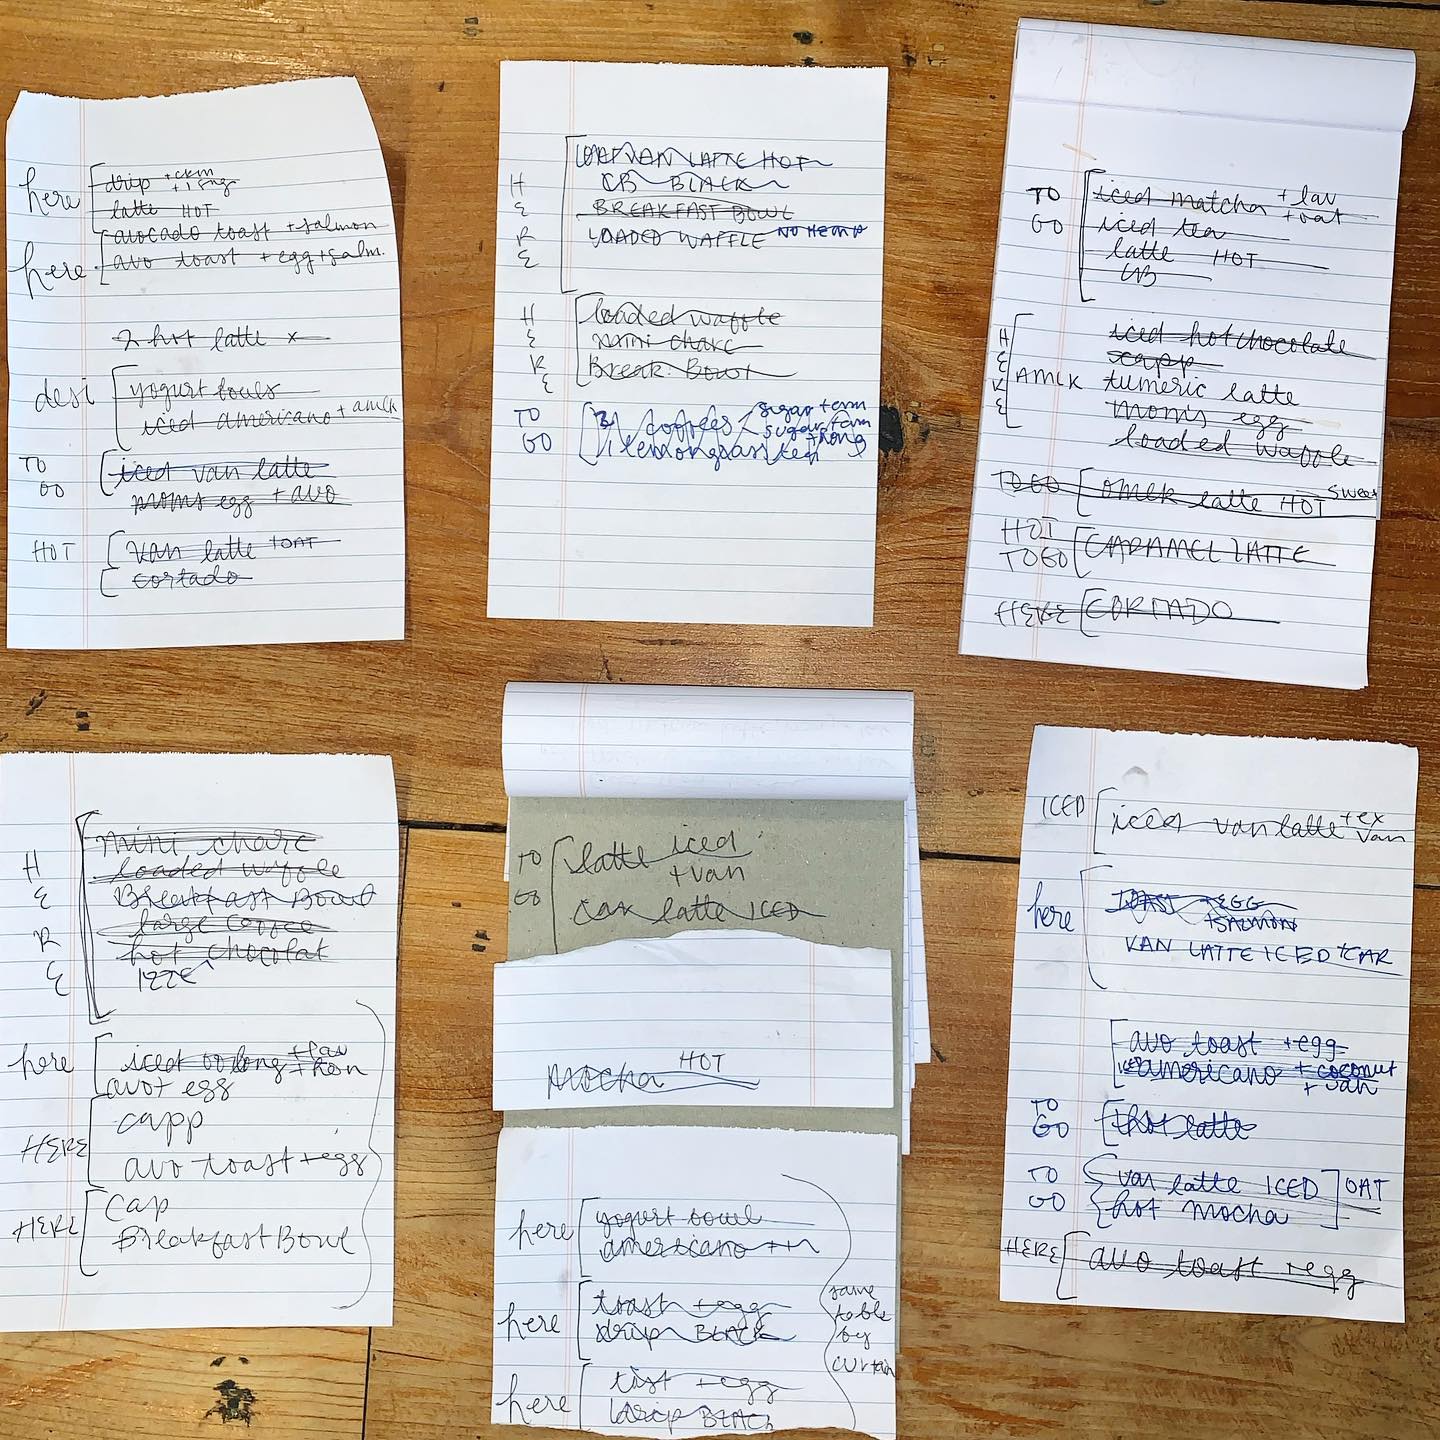 here
drip + crm
latte HOT
avocado toast + salmon
here
avo toast + egg + salm.
2 hot latte x
yogurt bowls
iced americano + amlk
TO
GO
iced van latte
moms egg + avo
HOT
van latte + OAT
cortado
H
E
R
E
VAN LATTE HOT
CB BLACK
BREAKFAST BOWL
LOADED WAFFLE
H
E
R
E
loaded waffle
mini charc
Break. Bowl
TO
GO
coffees
sugar + crm
sugar + crm
1 lemongrass tea + hong
TO
GO
iced matcha + lav
+ oat
iced tea
latte HOT
CB
H
E
R
E
iced hot chocolate
capp
AMLK tumeric latte
moms egg
loaded waffle
TO GO
latte HOT sweet
HOT
TO GO
CARAMEL LATTE
HERE
CORTADO
H
E
R
E
mini charc
loaded waffle
Breakfast Bowl
large coffee
hot chocolat
IZZE
here
iced oolong + lav
+ hon
avo + egg
HERE
capp
avo toast + egg
HERE
cap
Breakfast Bowl
TO
GO
latte iced
+ van
latte ICED
mocha HOT
here
yogurt bowl
americano
here
toast + egg
drip BLACK
here
+ egg
drip BLACK
same
table
by
curtain
ICED
iced van latte + ex
van
here
TOAST + EGG
+ SALMON
VAN LATTE ICED + CAR
avo toast + egg
iced americano + coconut
+ van
TO
GO
hot latte
TO
GO
van latte ICED
hot mocha
OAT
HERE
avo toast + egg